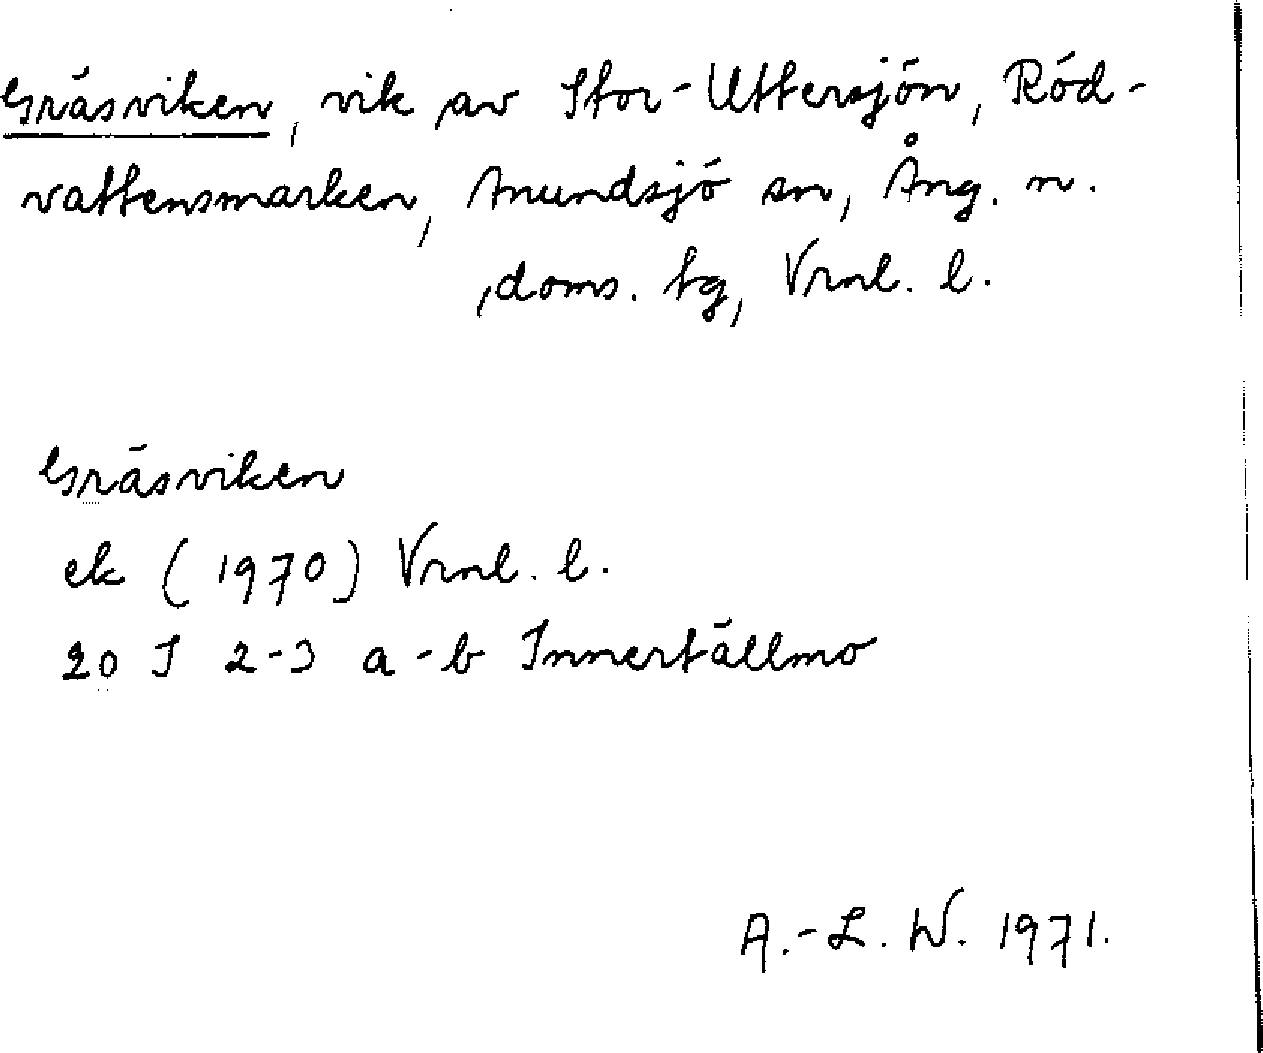 Gräsviken, vik av Stor-Uttersjön, Röd-
vattensmarken, Anundsjö sn, Ång. n.
doms. tg, Vrml. l.
Gräsviken
ek (1970) Vrml. l.
20 I 2-3 a-b Innertällmo
A.-L. W. 1971.